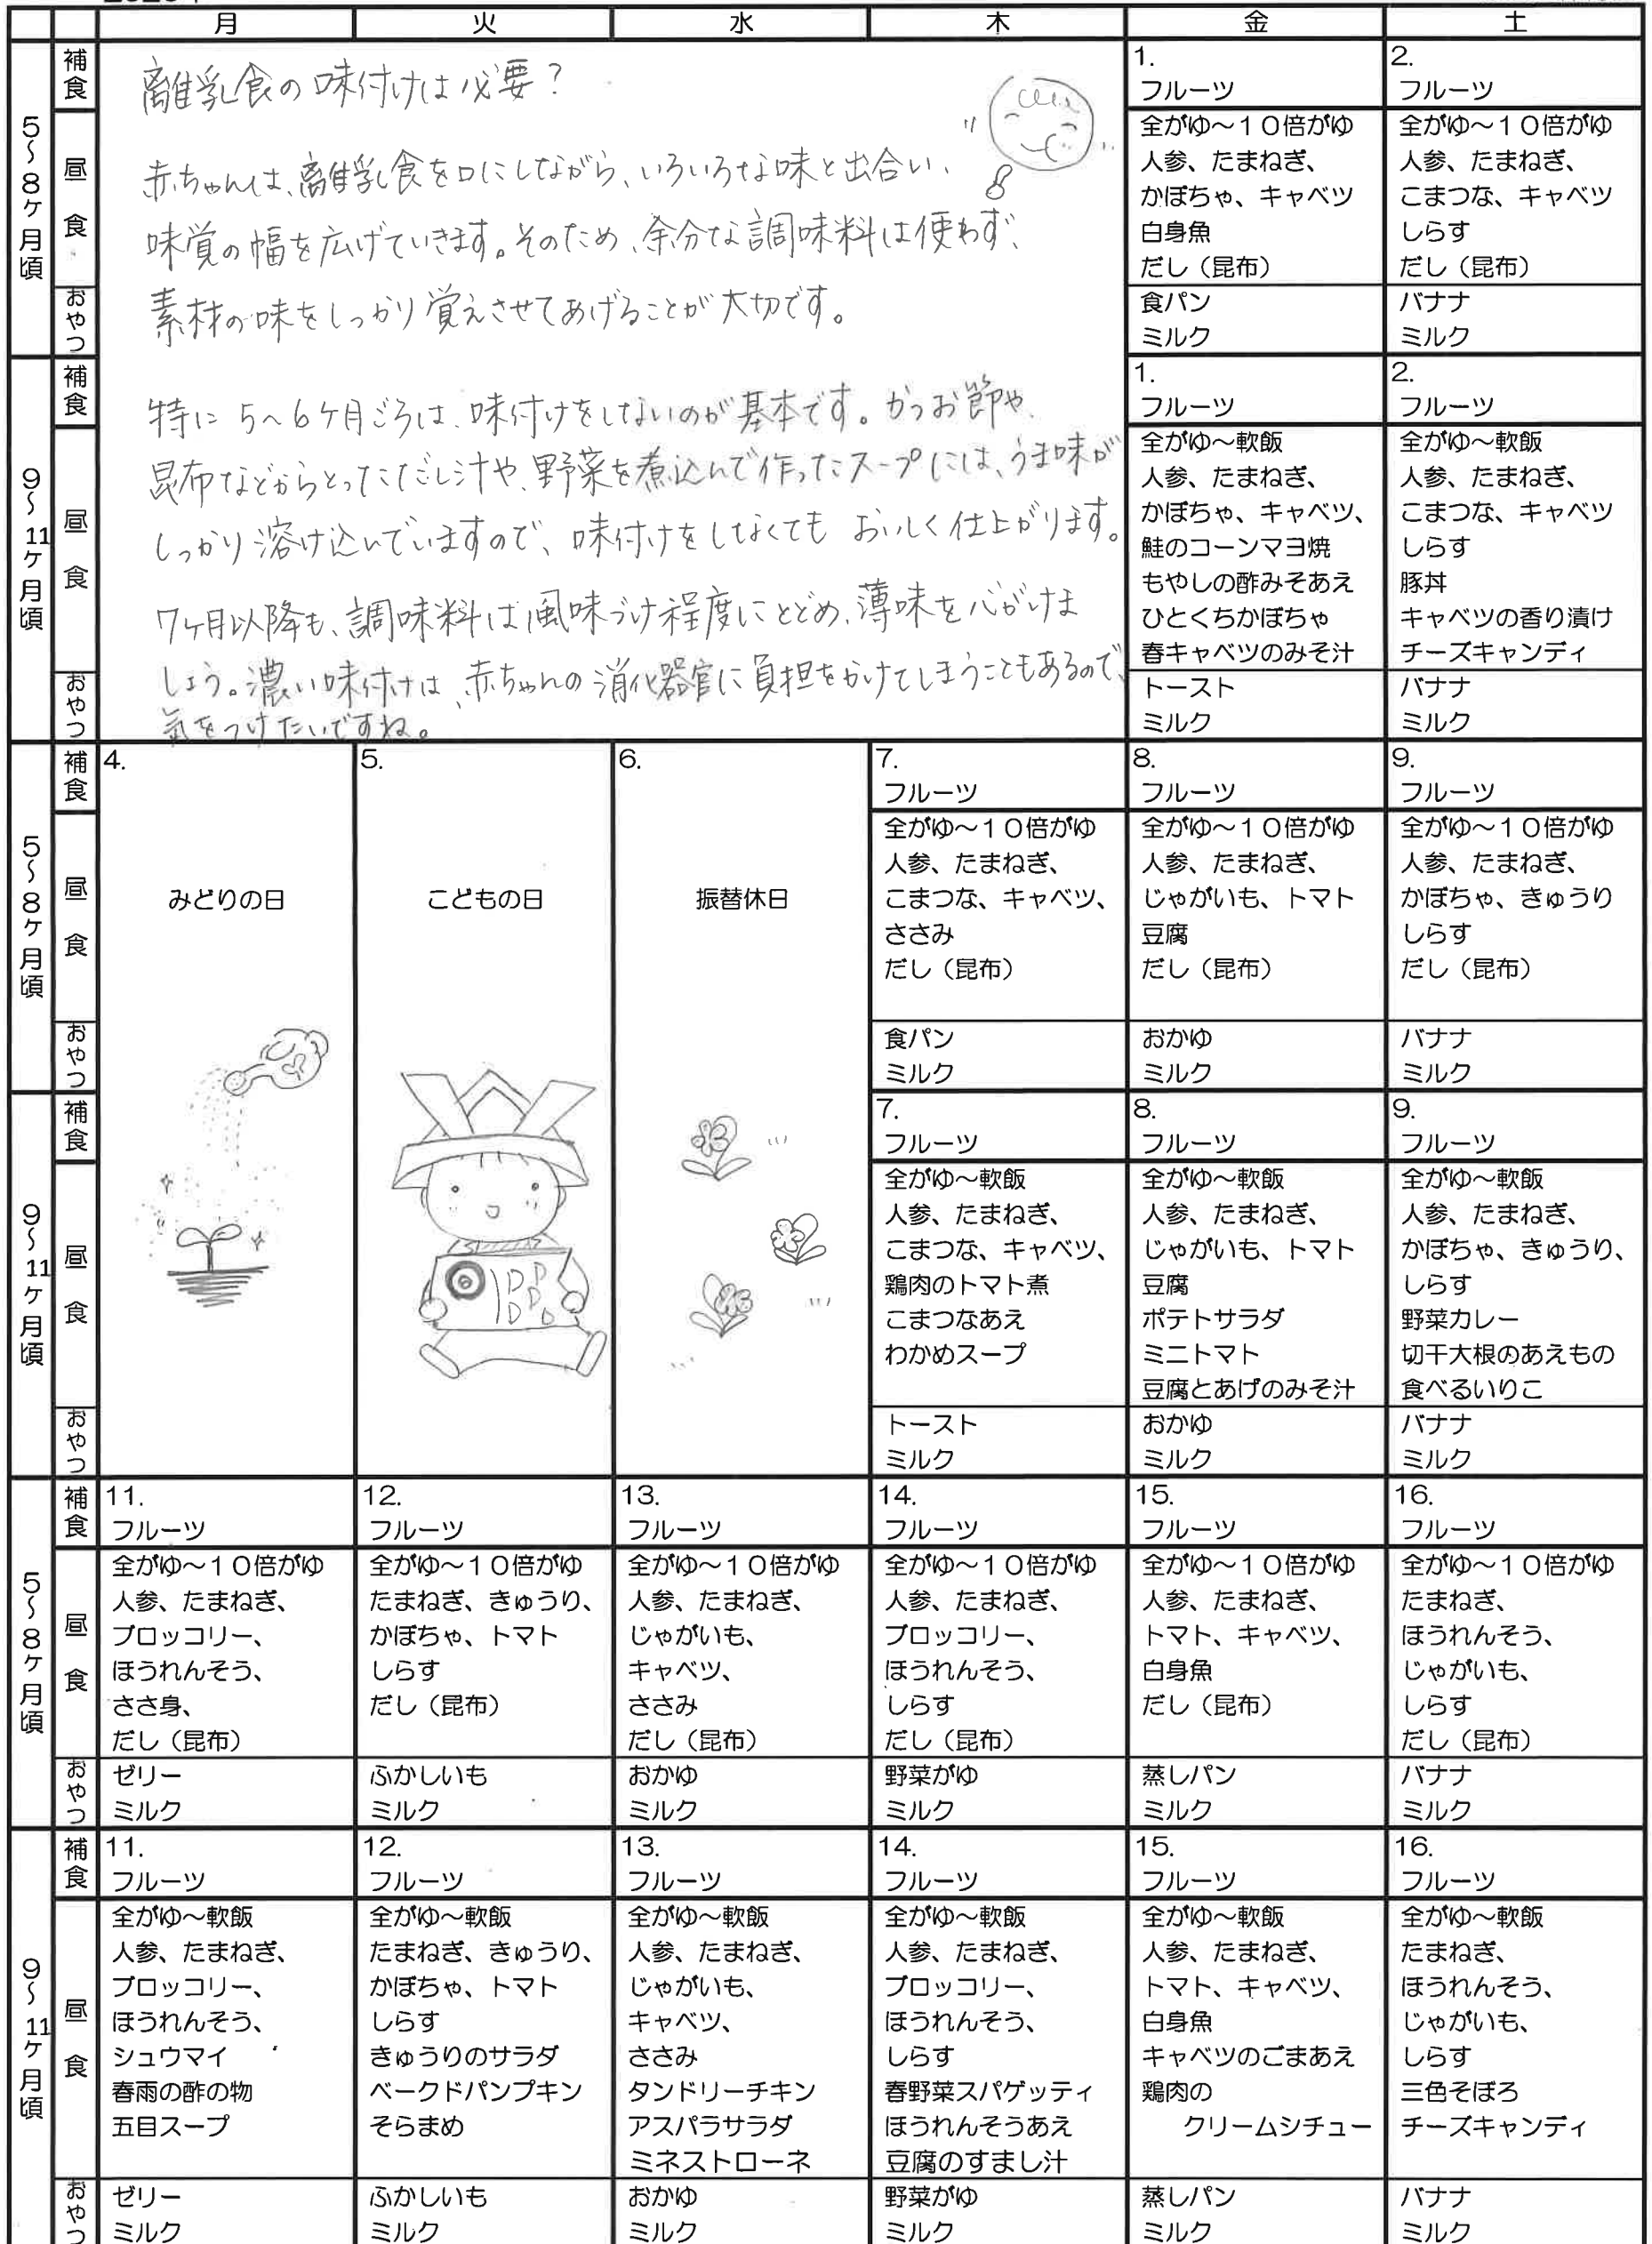 月 火 水 木 金 土
離乳食の味付けは必要？
赤ちゃんは、離乳食を口にしながら、いろいろな味と出合い、
味覚の幅を広げていきます。そのため、余分な調味料は使わず、
素材の味をしっかり覚えさせてあげることが大切です。
特に5～6ヶ月ごろは、味付けをしないのが基本です。かつお節や、
昆布などからとっただし汁や、野菜を煮込んで作ったスープには、うま味が
しっかり溶け込んでいますので、味付けをしなくてもおいしく仕上がります。
7ヶ月以降も、調味料は風味づけ程度にとどめ、薄味を心がけま
しょう。濃い味付けは、赤ちゃんの消化器官に負担をかけてしまうこともあるので、
気をつけたいですね。
5～8ヶ月頃
補食
1.
フルーツ
2.
フルーツ
昼食
全がゆ～１０倍がゆ
人参、たまねぎ、
かぼちゃ、キャベツ
白身魚
だし（昆布）
全がゆ～１０倍がゆ
人参、たまねぎ、
こまつな、キャベツ
しらす
だし（昆布）
おやつ
食パン
ミルク
バナナ
ミルク
9～11ヶ月頃
補食
1.
フルーツ
2.
フルーツ
昼食
全がゆ～軟飯
人参、たまねぎ、
かぼちゃ、キャベツ、
鮭のコーンマヨ焼
もやしの酢みそあえ
ひとくちかぼちゃ
春キャベツのみそ汁
全がゆ～軟飯
人参、たまねぎ、
こまつな、キャベツ
しらす
豚丼
キャベツの香り漬け
チーズキャンディ
おやつ
トースト
ミルク
バナナ
ミルク
5～8ヶ月頃
補食
4.
みどりの日
5.
こどもの日
6.
振替休日
7.
フルーツ
8.
フルーツ
9.
フルーツ
昼食
全がゆ～１０倍がゆ
人参、たまねぎ、
こまつな、キャベツ、
ささみ
だし（昆布）
全がゆ～１０倍がゆ
人参、たまねぎ、
じゃがいも、トマト
豆腐
だし（昆布）
全がゆ～１０倍がゆ
人参、たまねぎ、
かぼちゃ、きゅうり
しらす
だし（昆布）
おやつ
食パン
ミルク
おかゆ
ミルク
バナナ
ミルク
9～11ヶ月頃
補食
7.
フルーツ
8.
フルーツ
9.
フルーツ
昼食
全がゆ～軟飯
人参、たまねぎ、
こまつな、キャベツ、
鶏肉のトマト煮
こまつなあえ
わかめスープ
全がゆ～軟飯
人参、たまねぎ、
じゃがいも、トマト
豆腐
ポテトサラダ
ミニトマト
豆腐とあげのみそ汁
全がゆ～軟飯
人参、たまねぎ、
かぼちゃ、きゅうり、
しらす
野菜カレー
切干大根のあえもの
食べるいりこ
おやつ
トースト
ミルク
おかゆ
ミルク
バナナ
ミルク
5～8ヶ月頃
補食
11.
フルーツ
12.
フルーツ
13.
フルーツ
14.
フルーツ
15.
フルーツ
16.
フルーツ
昼食
全がゆ～１０倍がゆ
人参、たまねぎ、
ブロッコリー、
ほうれんそう、
ささ身、
だし（昆布）
全がゆ～１０倍がゆ
たまねぎ、きゅうり、
かぼちゃ、トマト
しらす
だし（昆布）
全がゆ～１０倍がゆ
人参、たまねぎ、
じゃがいも、
キャベツ、
ささみ
だし（昆布）
全がゆ～１０倍がゆ
人参、たまねぎ、
ブロッコリー、
ほうれんそう、
しらす
だし（昆布）
全がゆ～１０倍がゆ
人参、たまねぎ、
トマト、キャベツ、
白身魚
だし（昆布）
全がゆ～１０倍がゆ
たまねぎ、
ほうれんそう、
じゃがいも、
しらす
だし（昆布）
おやつ
ゼリー
ミルク
ふかしいも
ミルク
おかゆ
ミルク
野菜がゆ
ミルク
蒸しパン
ミルク
バナナ
ミルク
9～11ヶ月頃
補食
11.
フルーツ
12.
フルーツ
13.
フルーツ
14.
フルーツ
15.
フルーツ
16.
フルーツ
昼食
全がゆ～軟飯
人参、たまねぎ、
ブロッコリー、
ほうれんそう、
シュウマイ
春雨の酢の物
五目スープ
全がゆ～軟飯
たまねぎ、きゅうり、
かぼちゃ、トマト
しらす
きゅうりのサラダ
ベークドパンプキン
そらまめ
全がゆ～軟飯
人参、たまねぎ、
じゃがいも、
キャベツ、
ささみ
タンドリーチキン
アスパラサラダ
ミネストローネ
全がゆ～軟飯
人参、たまねぎ、
ブロッコリー、
ほうれんそう、
しらす
春野菜スパゲッティ
ほうれんそうあえ
豆腐のすまし汁
全がゆ～軟飯
人参、たまねぎ、
トマト、キャベツ、
白身魚
キャベツのごまあえ
鶏肉の
クリームシチュー
全がゆ～軟飯
たまねぎ、
ほうれんそう、
じゃがいも、
しらす
三色そぼろ
チーズキャンディ
おやつ
ゼリー
ミルク
ふかしいも
ミルク
おかゆ
ミルク
野菜がゆ
ミルク
蒸しパン
ミルク
バナナ
ミルク